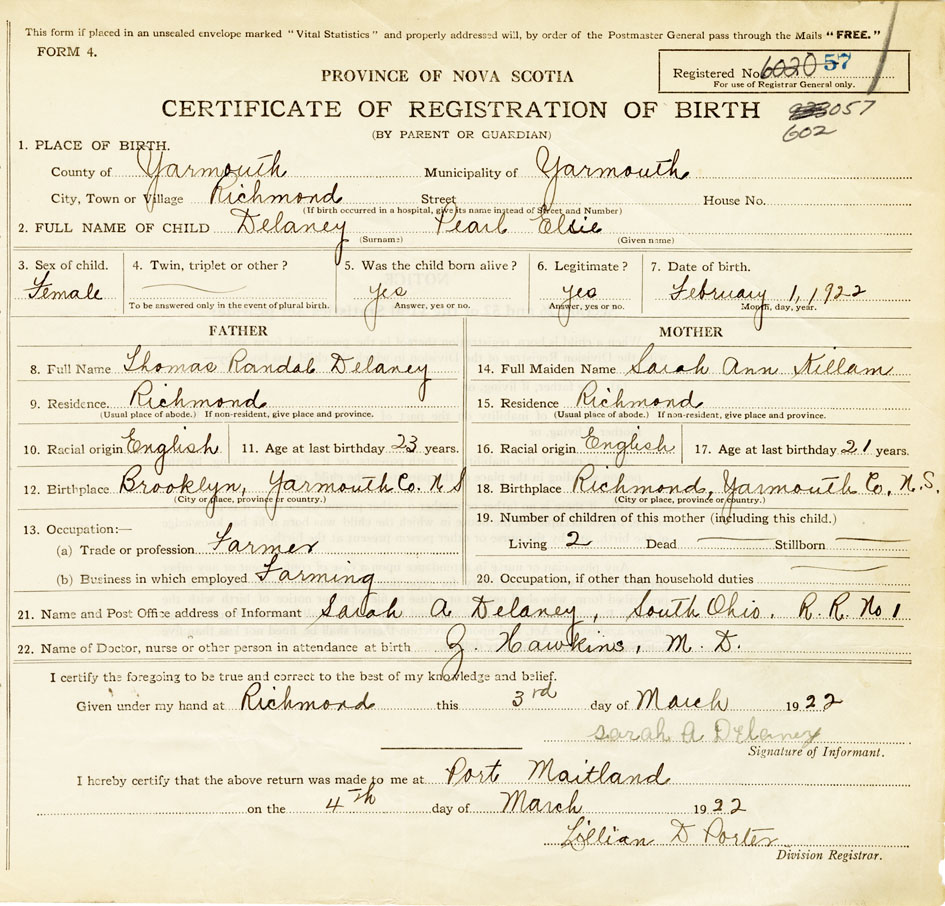 This form if placed in an unsealed envelope marked "Vital Statistics" and properly addressed will, by order of the Postmaster General pass through the Mails "FREE."
FORM 4.
PROVINCE OF NOVA SCOTIA
Registered No. 6020 57
For use of Registrar General only.
CERTIFICATE OF REGISTRATION OF BIRTH
057
602
(BY PARENT OR GUARDIAN)
1. PLACE OF BIRTH.
County of Yarmouth Municipality of Yarmouth
City, Town or Village Richmond Street House No.
(If birth occurred in a hospital, give its name instead of Street and Number)
2. FULL NAME OF CHILD Delaney Pearl Elsie
(Surname) (Given name)
3. Sex of child. 4. Twin, triplet or other? 5. Was the child born alive? 6. Legitimate? 7. Date of birth.
Female yes yes February 1, 1922
To be answered only in the event of plural birth. Answer, yes or no. Answer, yes or no. Month, day, year.
FATHER MOTHER
8. Full Name Thomas Randal Delaney 14. Full Maiden Name Sarah Ann Killam
9. Residence. Richmond 15. Residence Richmond
(Usual place of abode.) If non-resident, give place and province. (Usual place of abode.) If non-resident, give place and province.
10. Racial origin English 11. Age at last birthday 23 years. 16. Racial origin English 17. Age at last birthday 21 years.
12. Birthplace Brooklyn, Yarmouth Co. N S 18. Birthplace Richmond, Yarmouth Co, N.S.
(City or place, province or country.) (City or place, province or country.)
13. Occupation:— 19. Number of children of this mother (including this child.)
(a) Trade or profession Farmer Living 2 Dead Stillborn
(b) Business in which employed Farming 20. Occupation, if other than household duties
21. Name and Post Office address of Informant Sarah A Delaney, South Ohio, R. R. No 1
22. Name of Doctor, nurse or other person in attendance at birth Z. Hawkins, M. D.
I certify the foregoing to be true and correct to the best of my knowledge and belief.
Given under my hand at Richmond this 3rd day of March 1922
Sarah A Delaney
Signature of Informant.
I hereby certify that the above return was made to me at Port Maitland
on the 4th day of March 1922
Lillian D Porter
Division Registrar.